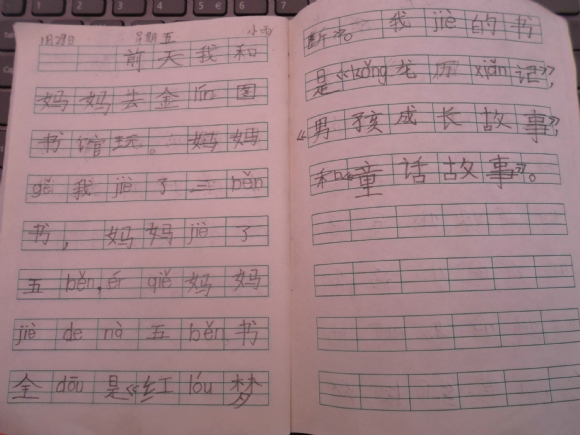 1月29日 星期五 小雨
前天我和
妈妈去金lín图
书馆玩。妈妈
gěi我jiè了三běn
书，妈妈jiè了
五běn,ér qiě妈妈
jiè de nà五běn书
全dōu是《红lóu梦
》。我jiè的书
是《kǒng龙历xiǎn记》,
《男孩成长故事》,
和《童话故事》。